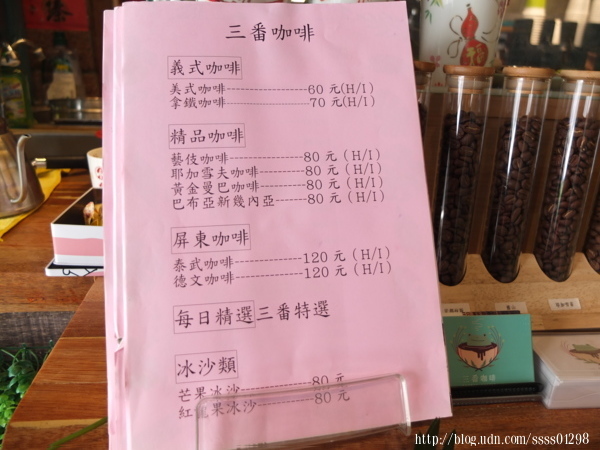 三番咖啡
義式咖啡
美式咖啡-----------------60 元(H/I)
拿鐵咖啡-----------------70 元(H/I)
精品咖啡
藝伎咖啡---------------80 元 ( H/I )
耶加雪夫咖啡---------80 元 ( H/I )
黃金曼巴咖啡---------80 元 ( H/I )
巴布亞新幾內亞------80 元 ( H/I )
屏東咖啡
泰武咖啡--------------120 元 ( H/I )
德文咖啡--------------120 元 ( H/I )
每日精選三番特選
冰沙類
芒果冰沙--------------80 元
紅龍果冰沙-----------80 元
三番咖啡
福
http://blog.udn.com/ssss01298